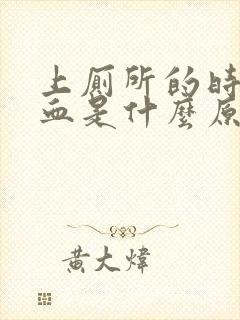 上厕所的時
血是什麼原
黄大煒